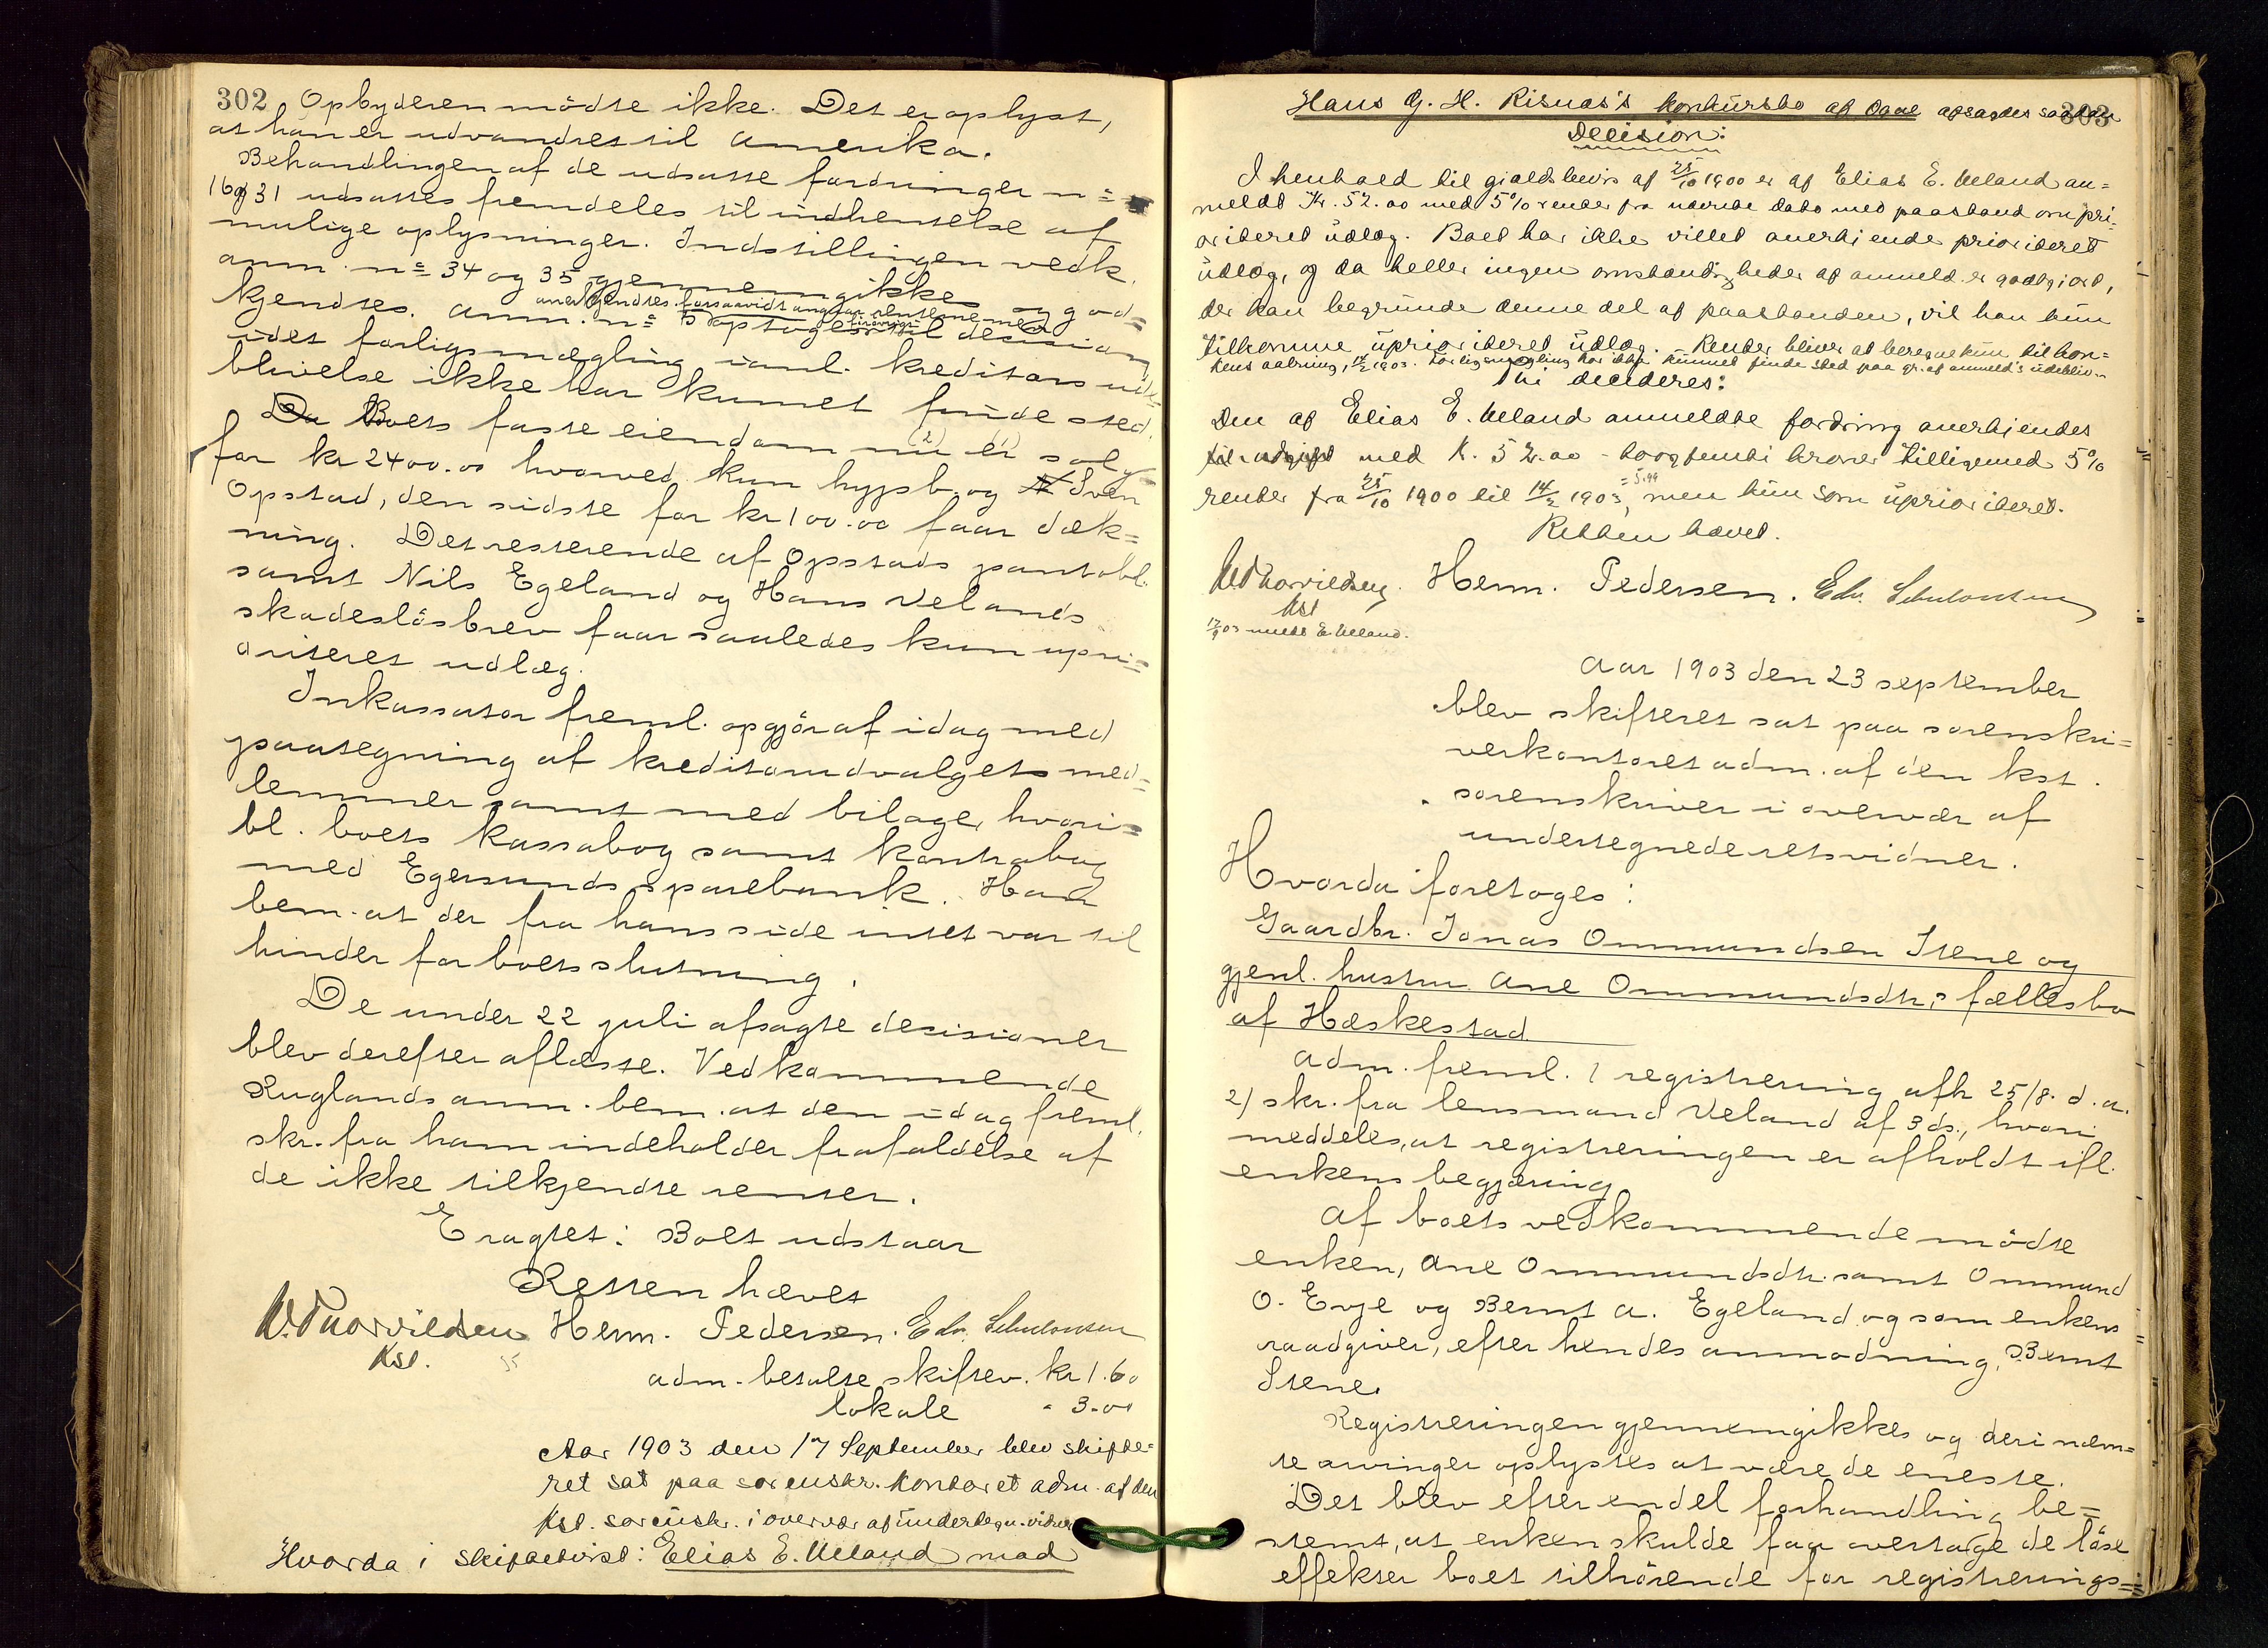 302 Opbyderen mödte ikke. Det er oplyst,
at han er udvandret til Amerika.
Behandlingen af de udsatte fordringer no
16 og 31 udsattes fremdeles til indhentelse af
mulige oplysninger. Indstillingen vedk.
anm. no 34 og 35 gjennemgikkes og god=
kjendtes. Anm. no 5 optoges til decision,
anerkjendtes forsaavidt angaar renterne men
idet forligsmægling ianl. kreditors ude=
blivelse ikke har kunnet finde sted.
Da Boets faste eiendom nu er solgt
for kr 2400.00 hvorved kun hypb. og Sven
Opstad, den sidste for kr 100.00 faar dæk=
ning. Det resterende af Opstads pantobl.
samt Nils Egeland og Hans Velands
skadeslösbrev faar saaledes kun upri=
oriteret udlæg.
Inkassator freml. opgjör af idag med
paategning af kreditorudvalgets med=
lemmer samt med bilage, hvori=
bl. boets kassabog samt kontrabog
med Egersunds sparebank. Han
bem. at der fra hans side intet var til
hinder for boets slutning.
De under 22 juli afsagte decisioner
blev derefter aflæste. Vedkommende
Ruglands anm. bem. at den idag freml.
skr. fra ham indeholder frafaldelse af
de ikke tilkjendte renter.
Eragtet: Boet udstaar
Retten hævet
Kst. Herm. Pedersen. Edv.
adm. betalte skiftev. kr 1.60
lokale " 3.00
Aar 1903 den 17 September blev skifte=
ret sat paa sorenskr. kontoret adm. af den
kst. sorenskr. i overvær af undertegn. vidner
Hvorda i skiftetvist: Elias E. Ueland mod
303
Hans G. H. Risnes's konkursbo af Ogne afsagdes saadan
Decision:
I henhold til gjældsbevis af 25/10 1900 er af Elias E. Ueland an=
meldt Kr. 52.00 med 5% renter fra nævnte dato med paastand om pri=
oriteret udlæg. Boet har ikke villet anerkjende prioriteret
udlæg, og da heller ingen omstændigheder af anmeld. er godtgjort,
der kan begrunde denne del af paastanden, vil han kun
tilkomme uprioriteret udlæg. Renter bliver at beregne kun til kon=
kurs aabning, 14/2 1903. Forligsmægling har ikke kunnet finde sted paa gr. af anmeld's udebliv.
Thi decideres:
Den af Elias E. Ueland anmeldte fordring anerkjendes
med K. 52.00 - toogfemti kroner tilligemed 5%
renter fra 25/10 1900 til 14/2 1903, men kun som uprioriteret.
Retten hævet.
Herm. Pedersen. Edv.
Kst
17/9 03 meddt E. Ueland.
Aar 1903 den 23 september
blev skifteret sat paa sorenskri=
verkontoret adm. af den kst.
sorenskriver i overvær af
undertegnede retsvidner.
Hvorda foretoges:
Gaardbr. Jonas Ommundsen Stene og
gjenl. hustru Ane Ommundsdtr,s fællesbo
af Heskestad
Adm. freml. 1 registrering afh 25/8. d.a.
2) skr. fra lensmand Veland af 3 ds., hvori
meddeles, at registreringen er afholdt ifl.
enkens begjæring
Af boets vedkommende mödte
enken, Ane Ommundsdtr. samt Ommund
O. Evje og Bernt A. Egeland og som enkens
raadgiver, efter hendes anmodning, Bernt
Stene.
Registreringen gjennemgikkes og deri nævn=
te arvinger oplystes at være de eneste.
Det blev efter endel forhandling be=
stemt, at enken skulde faa overtage de löse
effekter boet tilhörende for registrerings=